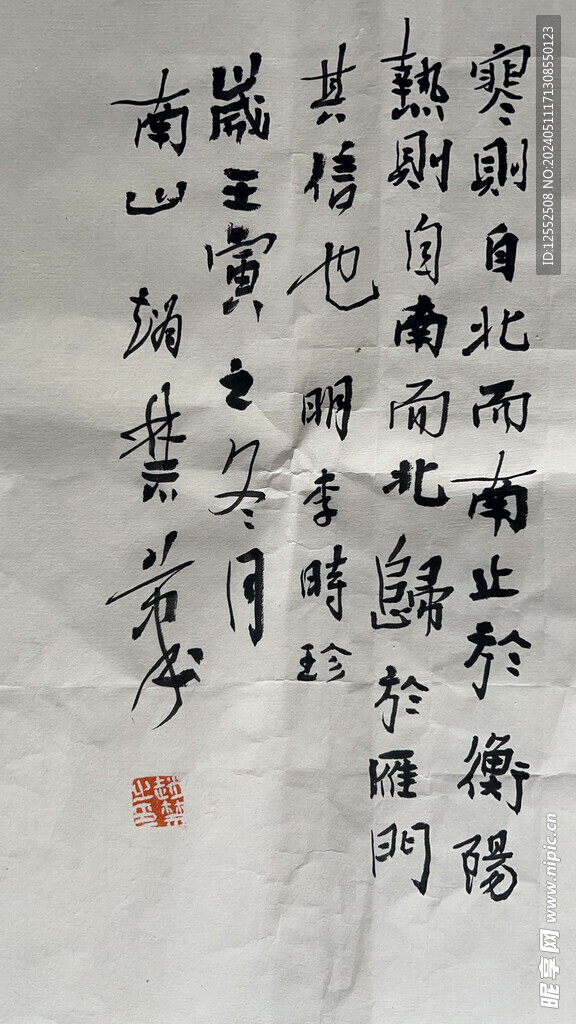 寒則自北而南止於衡陽
熱則自南而北歸於雁門
其信也 明 李時珍
歲壬寅之冬月
南山 趙禁 書
趙禁之印
ID:12552508 NO:20240511171308550123
昵享网 www.nipic.cn